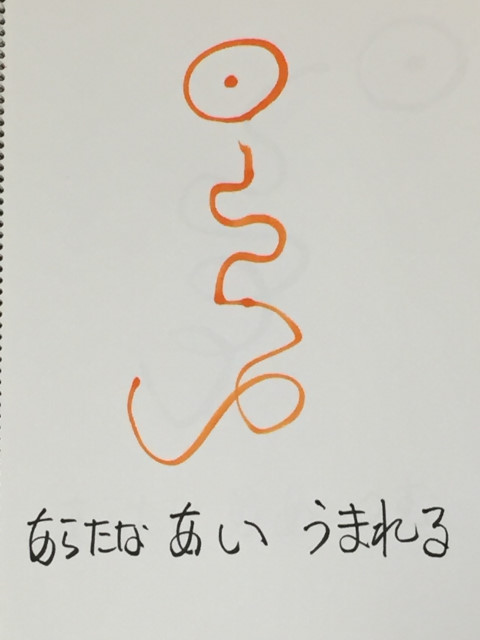 あらたな あい うまれる